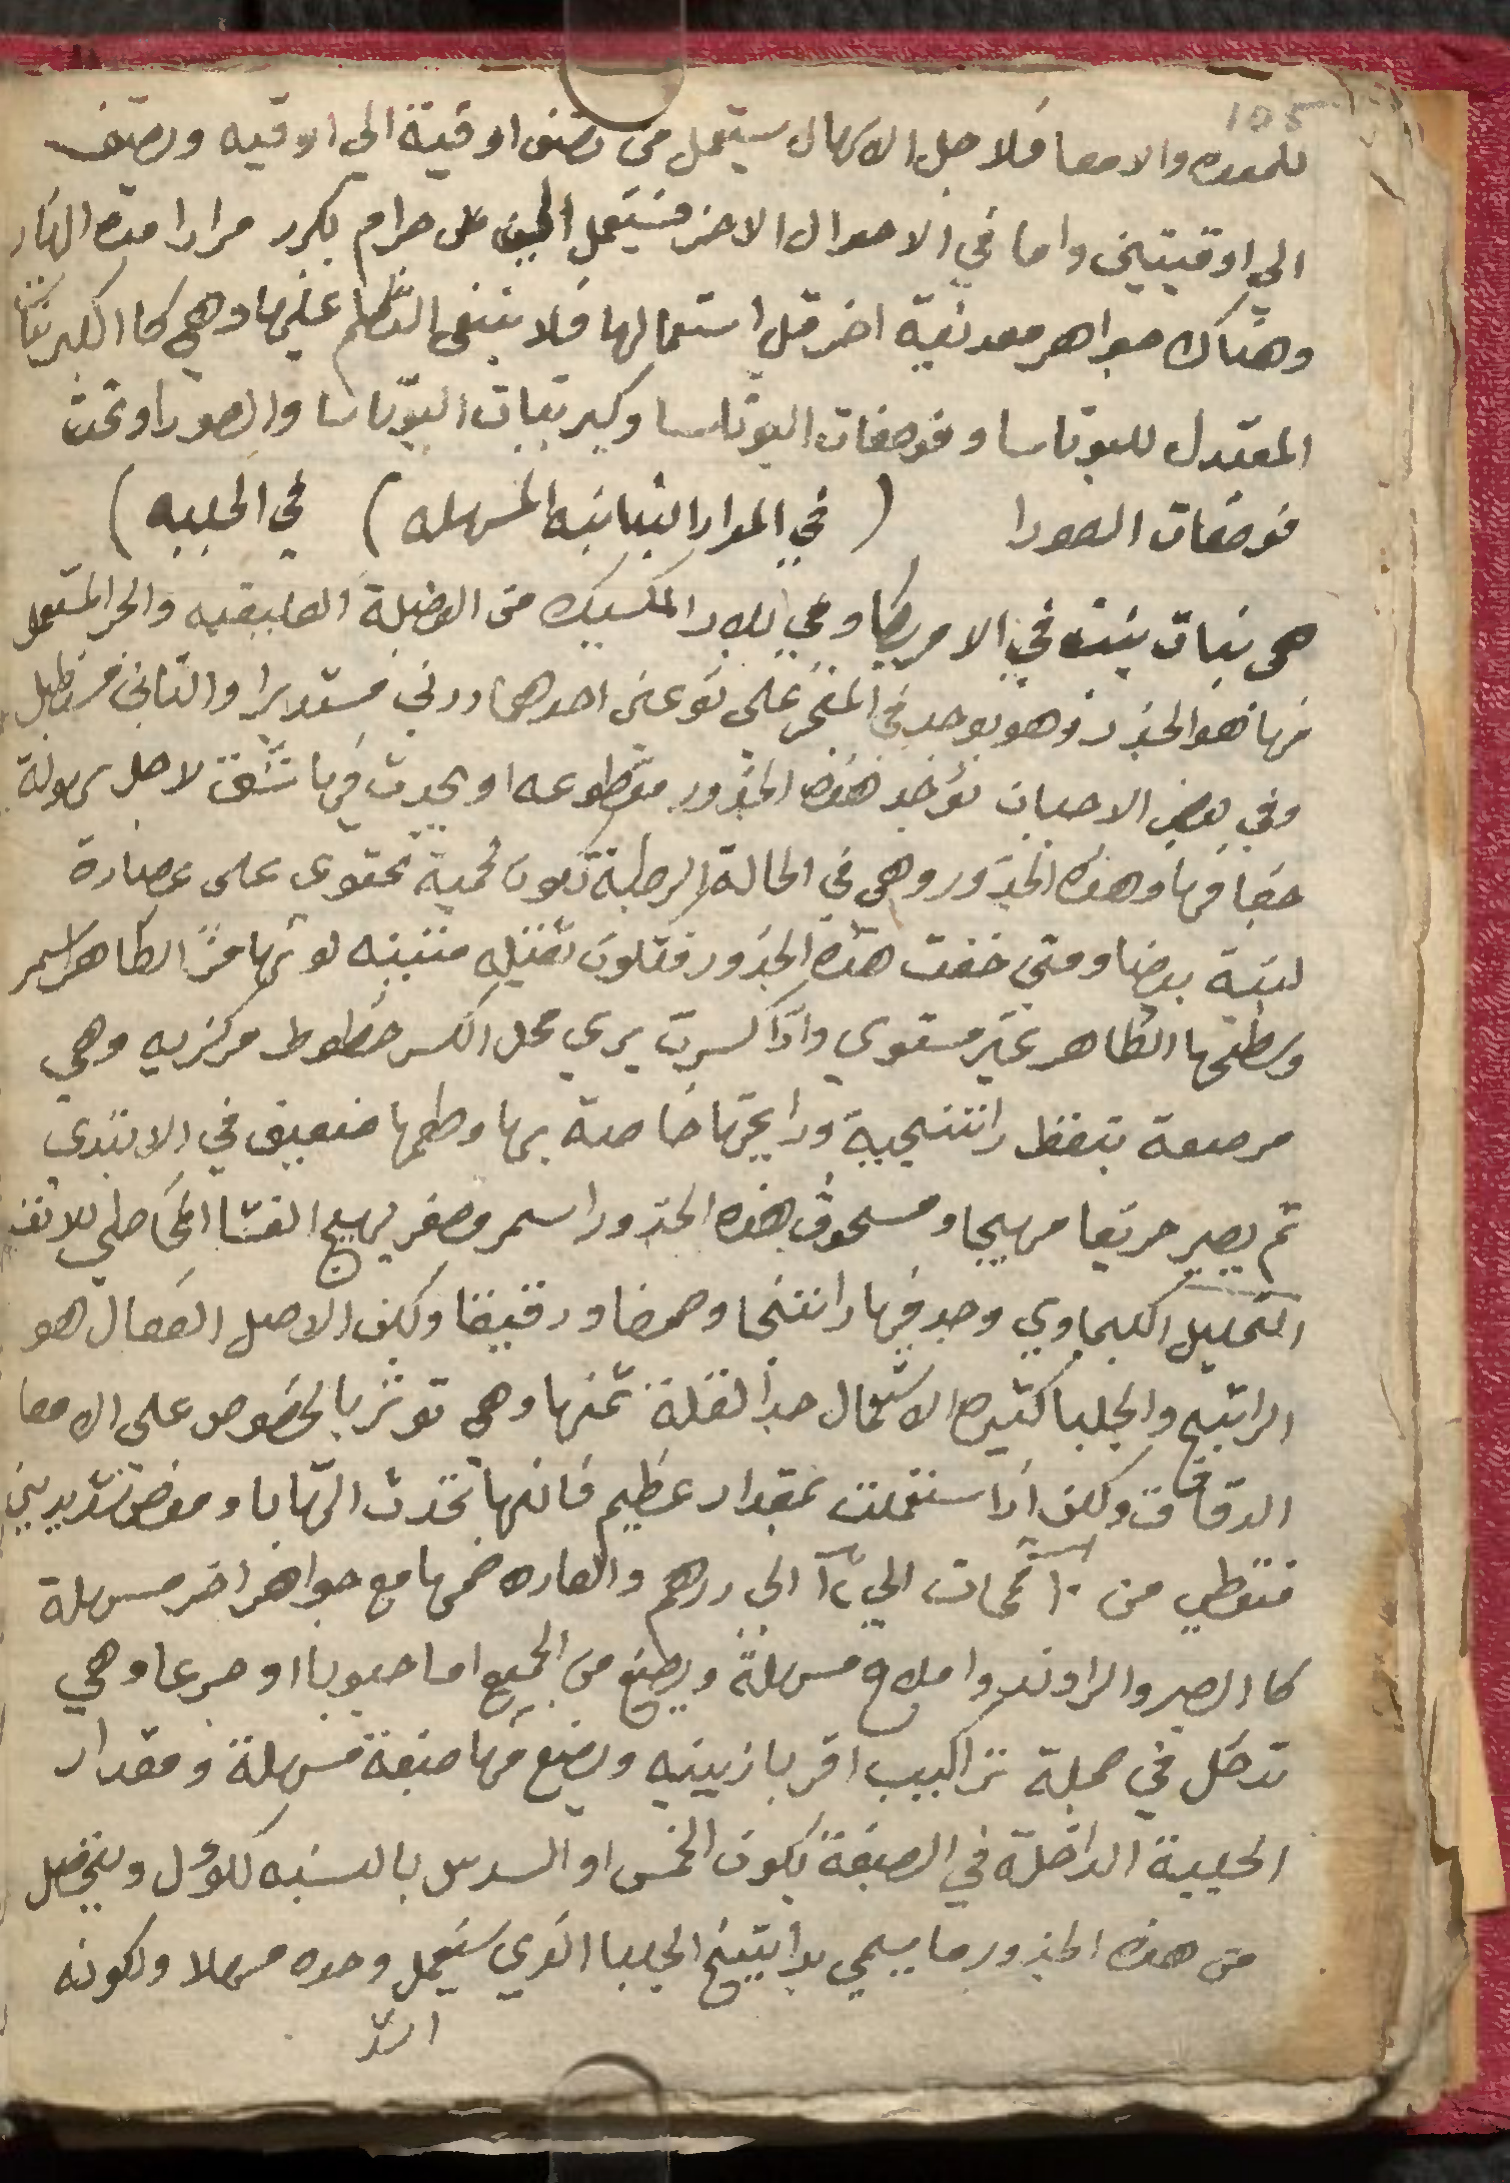 105
للمعده والامعا فلاجل الاسهال يستعمل من نصف اوقية الي اوقيه ونصف
الي اوقيتين واما في الاحوال الاخر فيستعمل الي درهم بكرر مرارا مدة النهار
وهناك جواهر معدنية اخر قل استعمالها فلا ينبغي التكلم عليها وهي كا الكبريتات
المعتدل للبوتاسا وفوصفات البوتاسا وكبريتات البوتاسا والصودا وتحت
فوصفات الصودا ( في المواد النباتيه المسهله ) في الجلبه )
هي نبات ينبت في الامريكا وفي بلاد المكسيك من الفصيلة العليقيه والجزء المستعمل
منها هو الجذر وهو يوجد في المتجر على نوعين احدهما درني مستديرا والثاني مستطيل
وفي بعض الاحيان تؤخذ هذه الجذور مقطوعه او يحدث فيها شقق لاجل سهولة
جفافها وهذه الجذور وهي في الحالة الرطبة تكون لحمية تحتوى على عصارة
لبنية بيضا ومتى جفت هذه الجذور فتكون ثقيله متينه لونها من الظاهر اسمر
وسطحها الظاهر غير مستوي واذا كسرت يرى محل الكسر خطوط مركزيه وهي
مرصعة بنقط راتنجية ورايحتها خاصة بها وطعمها ضعيف في الابتدى
ثم يصير حريفا مهيجا ومسحوق هذه الجذور اسمر مصفر يهيج الغشا المخاطي للانف
التحليل الكيماوي وجد فيها راتنجا وصمغا ودقيقا ولكن الاصل الفعال هو
الراتنج والجلبا كثيرة الاستعمال جدا لقلة ثمنها وهي توثر بالخصوص على الامعا
الدقاق ولكن اذا استعملت بمقدار عظيم فانها تحدث التهابا ومغص شديدين
فتعطي من ١٠ قمحات الي ٢٤ الى درهم والعاده ضمها مع جواهر اخر مسهلة
كا الصبر والراوند واملاح مسهلة ويصنع من الجميع اما حبوبا او جرعا وهي
تدخل في جملة تراكيب اقرباذينيه ويصنع منها صبغة مسهلة ومقدار
الجلبة الداخلة في الصبغة يكون الخمس او السدس بالنسبه للكؤل ويتحصل
من هذه الجذور ما يسمى براتينج الجلبا الذي يستعمل وحده مسهلا ولكونه
اشد